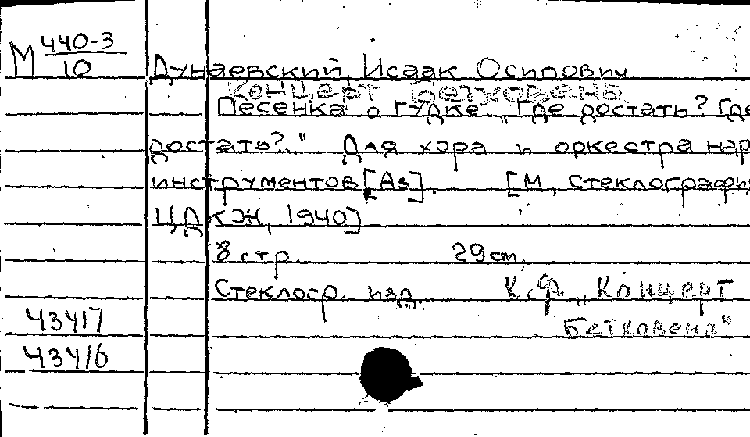 М 440-3/10
Дунаевский, Исаак Осипович
Концерт Бетховена
Песенка о гудке. "Где достать? Где
достать?.." Для хора и оркестра нар
инструментов [As]. [М, стеклография
ЦДКЖ, 1940]
8 стр. 29 см.
Стеклогр. изд. К.ф. "Концерт
Бетховена"
43417
43416